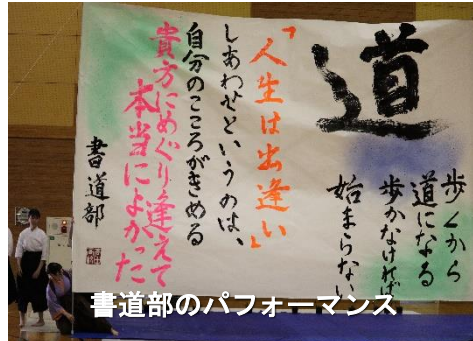 道
歩くから
道になる
歩かなければ
始まらない
「人生は出逢い」
しあわせというのは、
自分のこころがきめる
貴方にめぐり逢えて
本当によかった
書道部
書道部のパフォーマンス